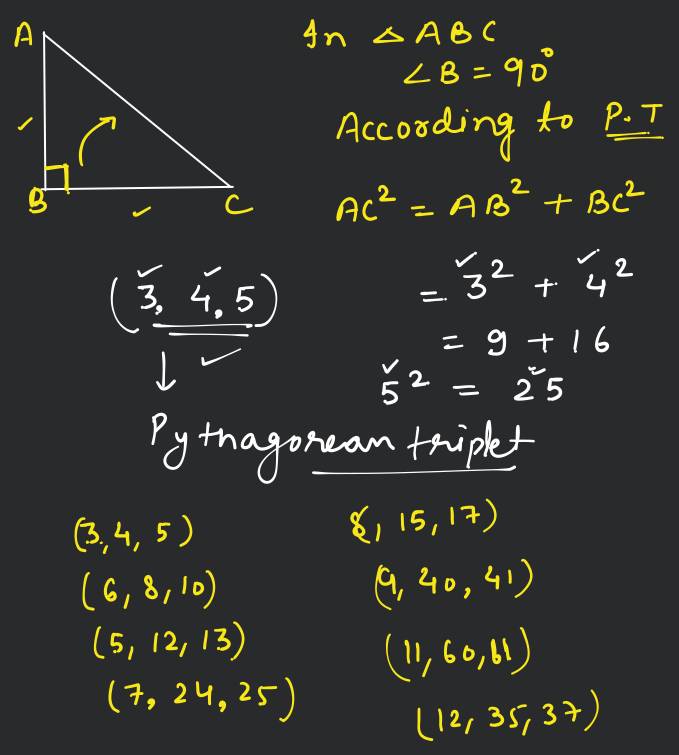 A
B
C
In △ABC
∠B = 90°
According to P.T
AC² = AB² + BC²
(3, 4, 5)
= 3² + 4²
= 9 + 16
5² = 25
Pythagorean triplet
(3, 4, 5)
(6, 8, 10)
(5, 12, 13)
(7, 24, 25)
8, 15, 17)
(9, 40, 41)
(11, 60, 61)
(12, 35, 37)